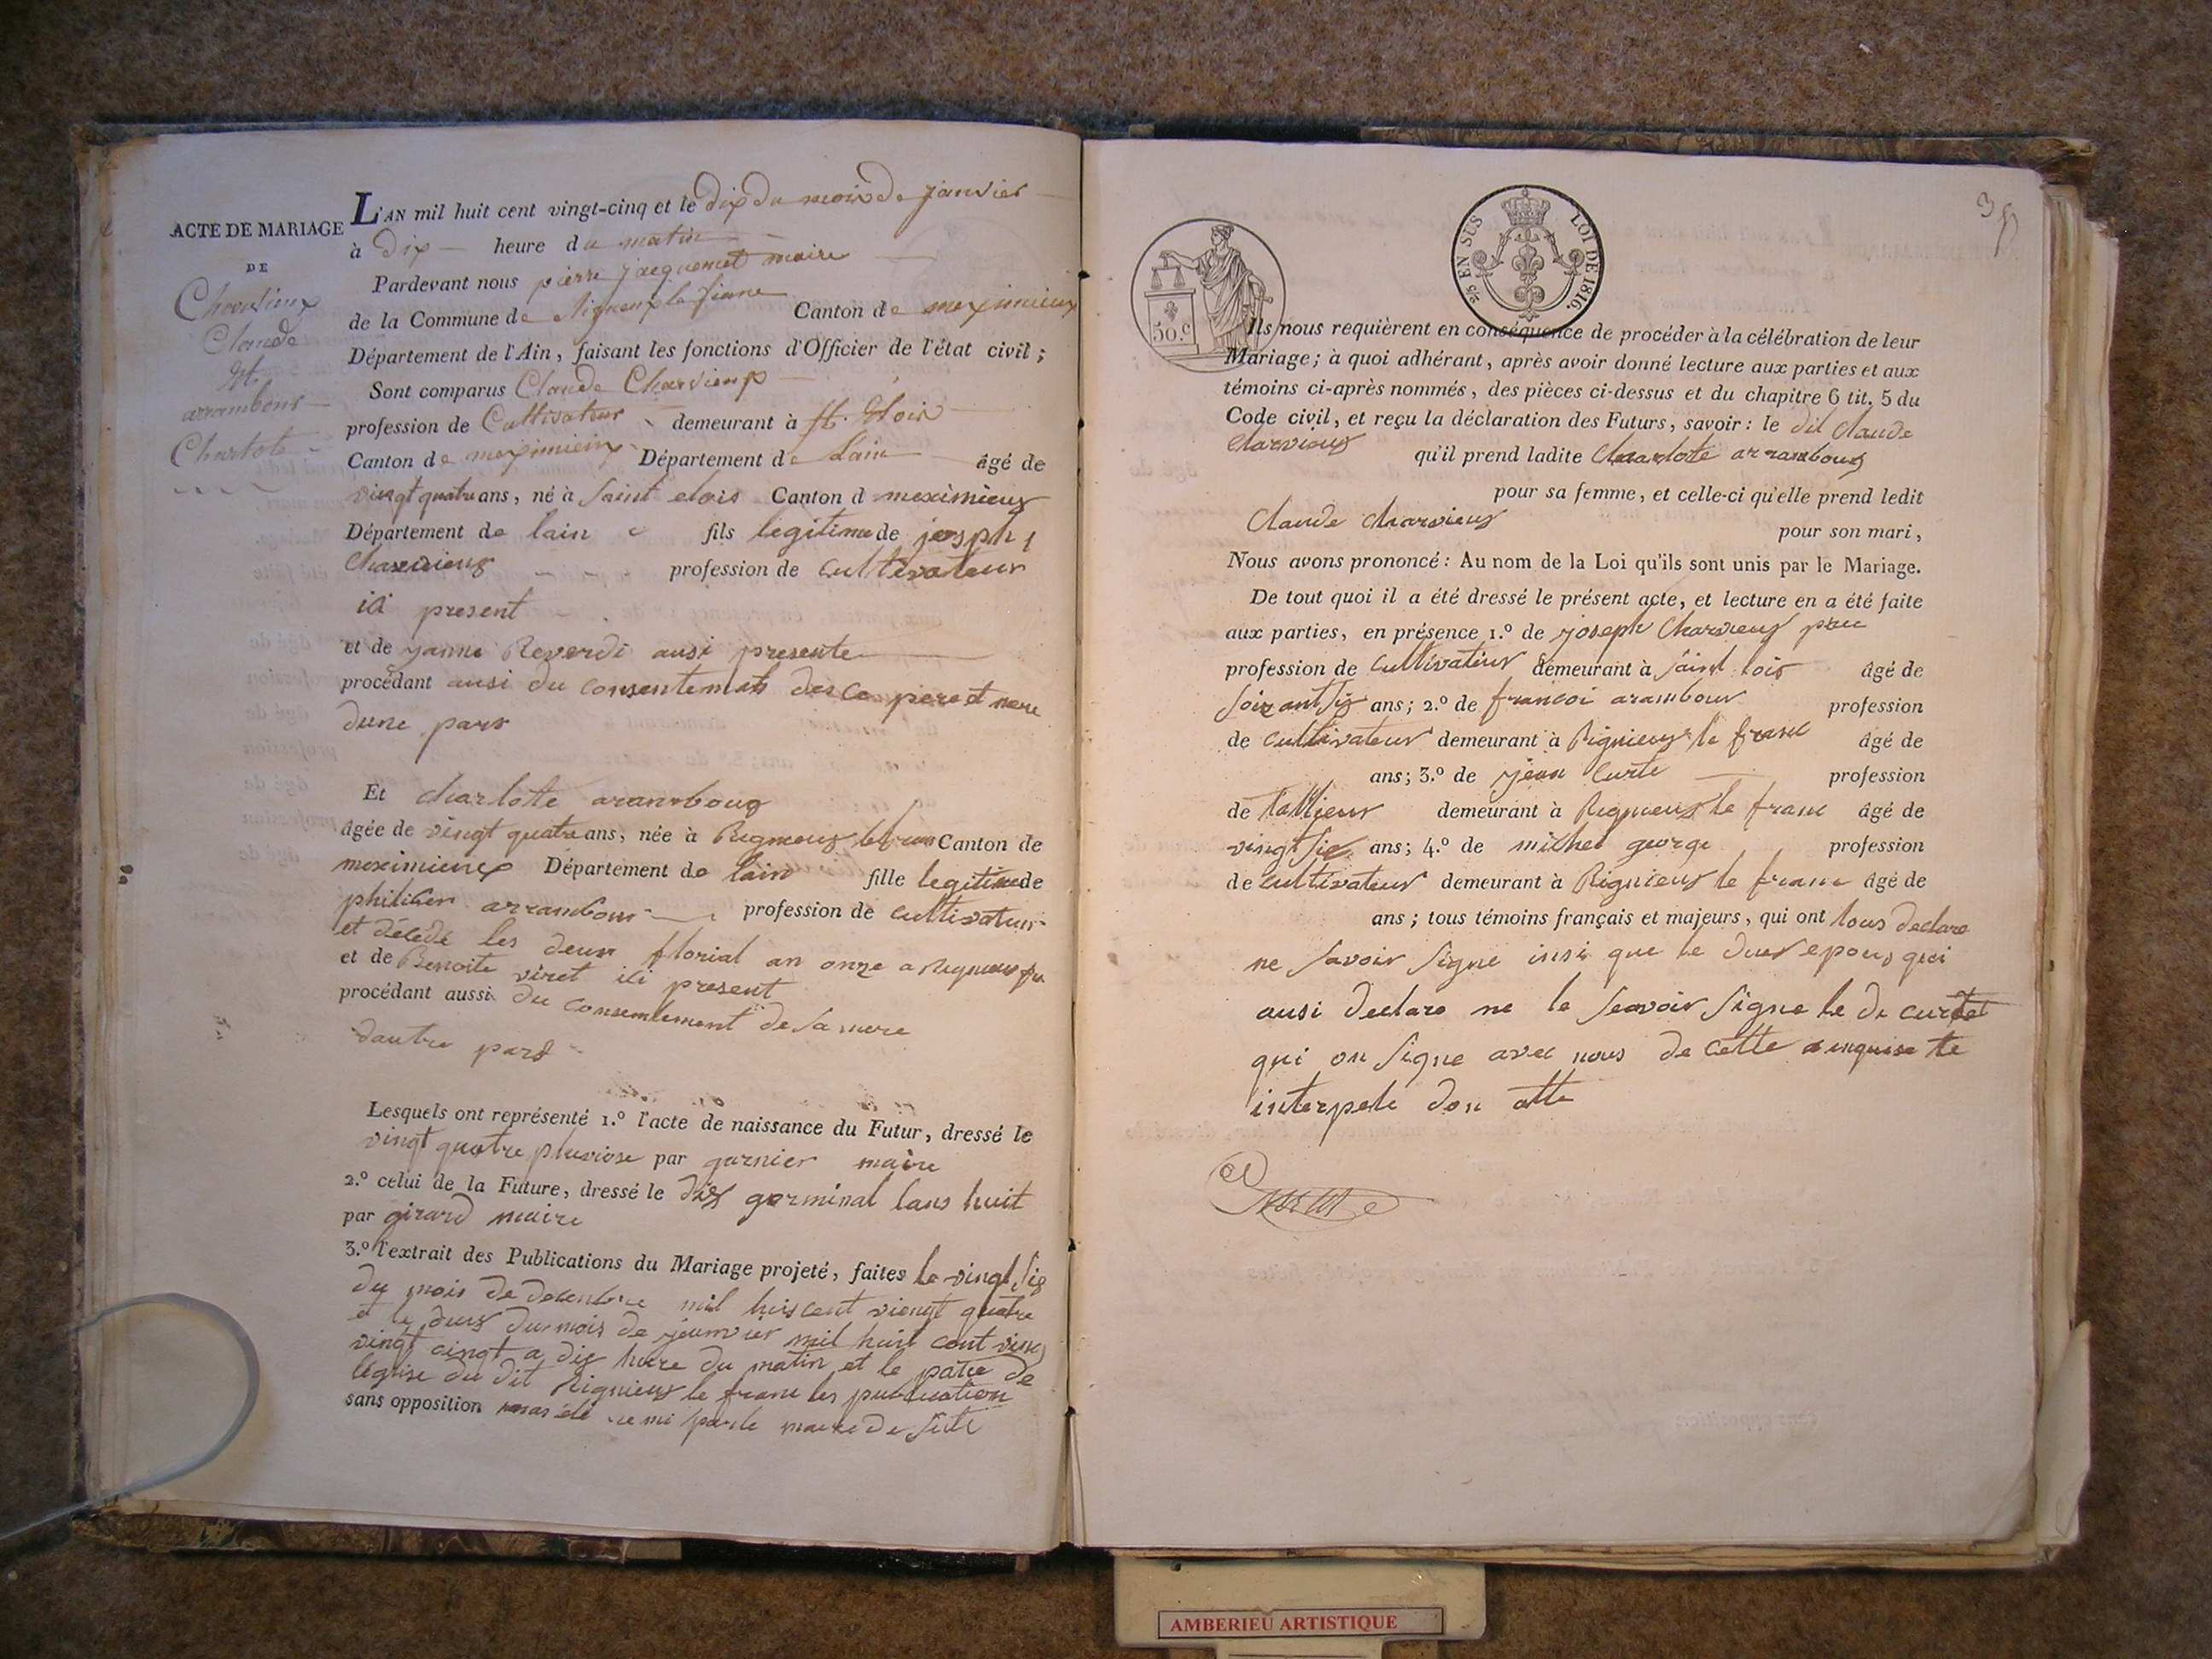 ACTE DE MARIAGE
DE
Charvieux
Claude
et
arrambour
Charlote
L'AN mil huit cent vingt-cinq et le dix du mois de janvier
à dix heure du matin
Pardevant nous pierre jacquemet maire
de la Commune de Canton de meximieux
Département de l'Ain, faisant les fonctions d'Officier de l'état civil;
Sont comparus Claude Charvieux
profession de Cultivateur demeurant à st. Elois
Canton de meximieux Département de Lain âgé de
vingt quatre ans, né à Saint elois Canton d meximieux
Département de lain fils legitime de joseph
Charvieux profession de Cultivateur
ici present
et de janne Reverdi ausi presente
procédant ausi du consentement des ce pere et mere
dune part
Et charlote arambour
âgée de vingt quatre ans, née à Rignieux le franc Canton de
meximieux Département de lain fille legitime de
philiber arrambour profession de cultivateur
et décédé les deux florial an onze a
et de Benoite viret ici present
procédant aussi du consentement de sa mere
dautre part
Lesquels ont représenté 1.º l'acte de naissance du Futur, dressé le
vingt quatre pluviose par garnier maire
2.º celui de la Future, dressé le dix germinal lans huit
par girard maire
3.º l'extrait des Publications du Mariage projeté, faites le vingt six
du mois de decembre mil huis cent viengt quatre
et le deux du mois de jeanvier mil huit cent vinc
vingt cingt a dix hure du matin et le
léglise du dit Rignieux le franc les publication
sans opposition maire de
35
EN SUS LOI DE 1816.
50.c
Ils nous requièrent en conséquence de procéder à la célébration de leur
Mariage; à quoi adhérant, après avoir donné lecture aux parties et aux
témoins ci-après nommés, des pièces ci-dessus et du chapitre 6 tit. 5 du
Code civil, et reçu la déclaration des Futurs, savoir: le dit Claude
Charvieux qu'il prend ladite Charlote arrambour
pour sa femme, et celle-ci qu'elle prend ledit
Claude Charvieux pour son mari,
Nous avons prononcé: Au nom de la Loi qu'ils sont unis par le Mariage.
De tout quoi il a été dressé le présent acte, et lecture en a été faite
aux parties, en présence 1.º de joseph Charvieux
profession de cultivateur demeurant à saint lois âgé de
soixant six ans; 2.º de francoi arambour profession
de cultivateur demeurant à Rignieux le franc âgé de
ans; 3.º de jean Curte profession
de tallieur demeurant à Rignieux le franc âgé de
vingt six ans; 4.º de michel george profession
de cultivateur demeurant à Rignieux le franc âgé de
ans; tous témoins français et majeurs, qui ont tous declare
ne savoir signe insi que le epoux qui
ausi declare ne le scavoir signe le de curtet
qui on signe avec nous de cette enquise te
interpele don atte